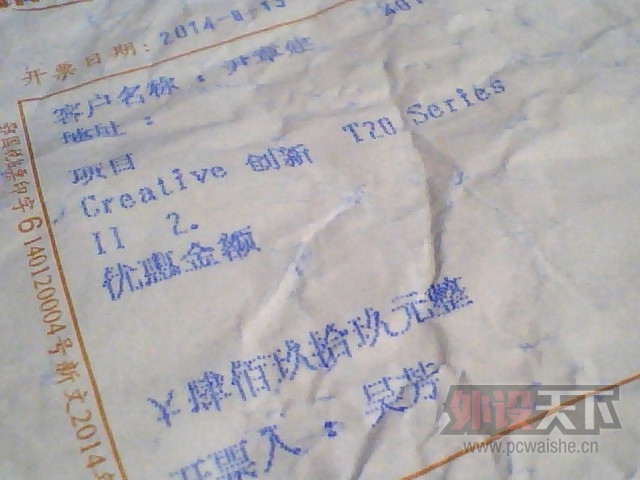 开票日期：2014-8-13
客户名称：尹章建
地址：
项目
Creative 创新 T20 Series
II 2.
优惠金额
¥肆佰玖拾玖元整
开票人：吴芳
6140120004号新文2014年
外设天下
www.pcwaishe.cn